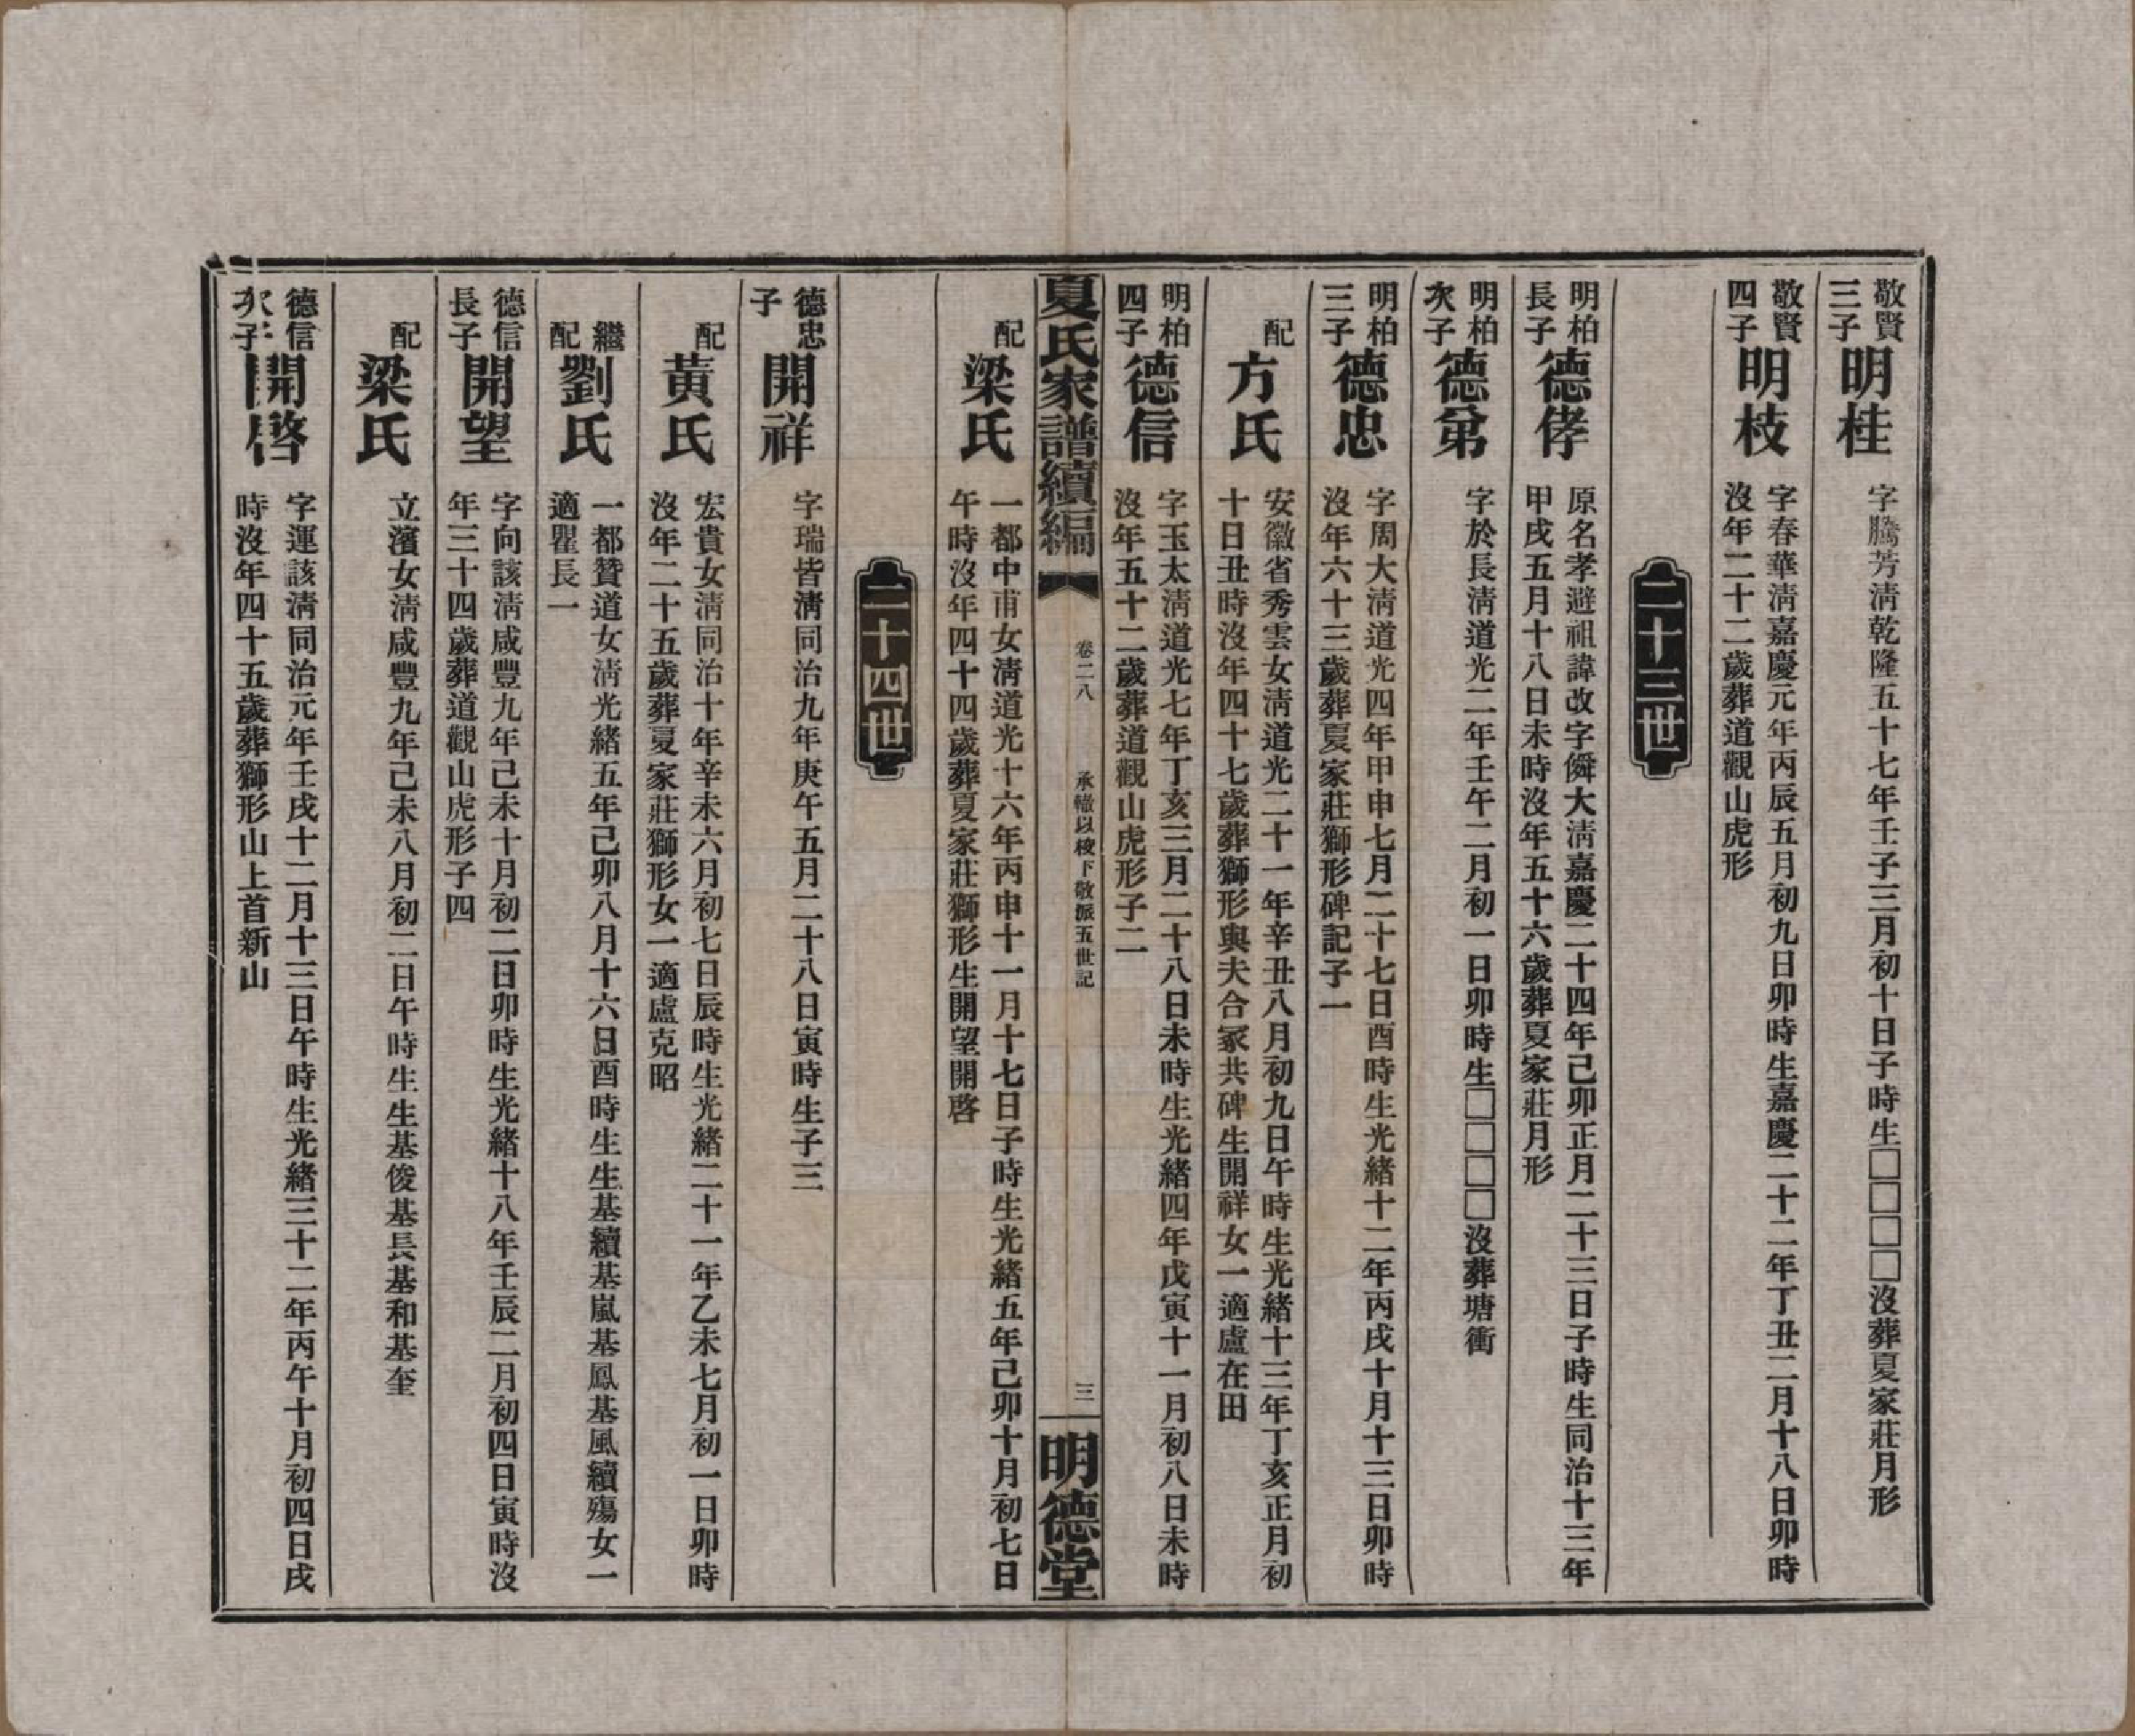 敬賢
三子
明桂
字騰芳淸乾隆五十七年壬子三月初十日子時生□□□□沒葬夏家莊月形
敬賢
四子
明枝
字春華淸嘉慶元年丙辰五月初九日卯時生嘉慶二十二年丁丑二月十八日卯時
沒年二十二歲葬道觀山虎形
二十三世
明柏
長子
德侾
原名孝避祖諱改字僯大淸嘉慶二十四年己卯正月二十三日子時生同治十三年
甲戌五月十八日未時沒年五十六歲葬夏家莊月形
明柏
次子
德弟
字於長淸道光二年壬午二月初一日卯時生□□□□沒葬塘衝
明柏
三子
德忠
字周大淸道光四年甲申七月二十七日酉時生光緒十二年丙戌十月十三日卯時
沒年六十三歲葬夏家莊獅形碑記子一
配
方氏
安徽省秀雲女淸道光二十一年辛丑八月初九日午時生光緒十三年丁亥正月初
十日丑時沒年四十七歲葬獅形與夫合冢共碑生開祥女一適盧在田
明柏
四子
德信
字玉太淸道光七年丁亥三月二十八日未時生光緒四年戊寅十一月初八日未時
沒年五十二歲葬道觀山虎形子二
夏氏家譜續編
卷二八
承轍以稜下敬派五世記
三
明德堂
配
梁氏
一都中甫女淸道光十六年丙申十一月十七日子時生光緒五年己卯十月初七日
午時沒年四十四歲葬夏家莊獅形生開望開啓
二十四世
德忠
子
開祥
字瑞皆淸同治九年庚午五月二十八日寅時生子三
配
黃氏
宏貴女淸同治十年辛未六月初七日辰時生光緒二十一年乙未七月初一日卯時
沒年二十五歲葬夏家莊獅形女一適盧克昭
繼
配
劉氏
一都贊道女淸光緒五年己卯八月十六日酉時生生基續基嵐基鳳基風續殤女一
適瞿長一
德信
長子
開望
字向該淸咸豐九年己未十月初二日卯時生光緒十八年壬辰二月初四日寅時沒
年三十四歲葬道觀山虎形子四
配
梁氏
立濱女淸咸豐九年己未八月初二日午時生生基俊基長基和基奎
德信
次子
開啓
字運該淸同治元年壬戌十二月十三日午時生光緒三十二年丙午十月初四日戌
時沒年四十五歲葬獅形山上首新山